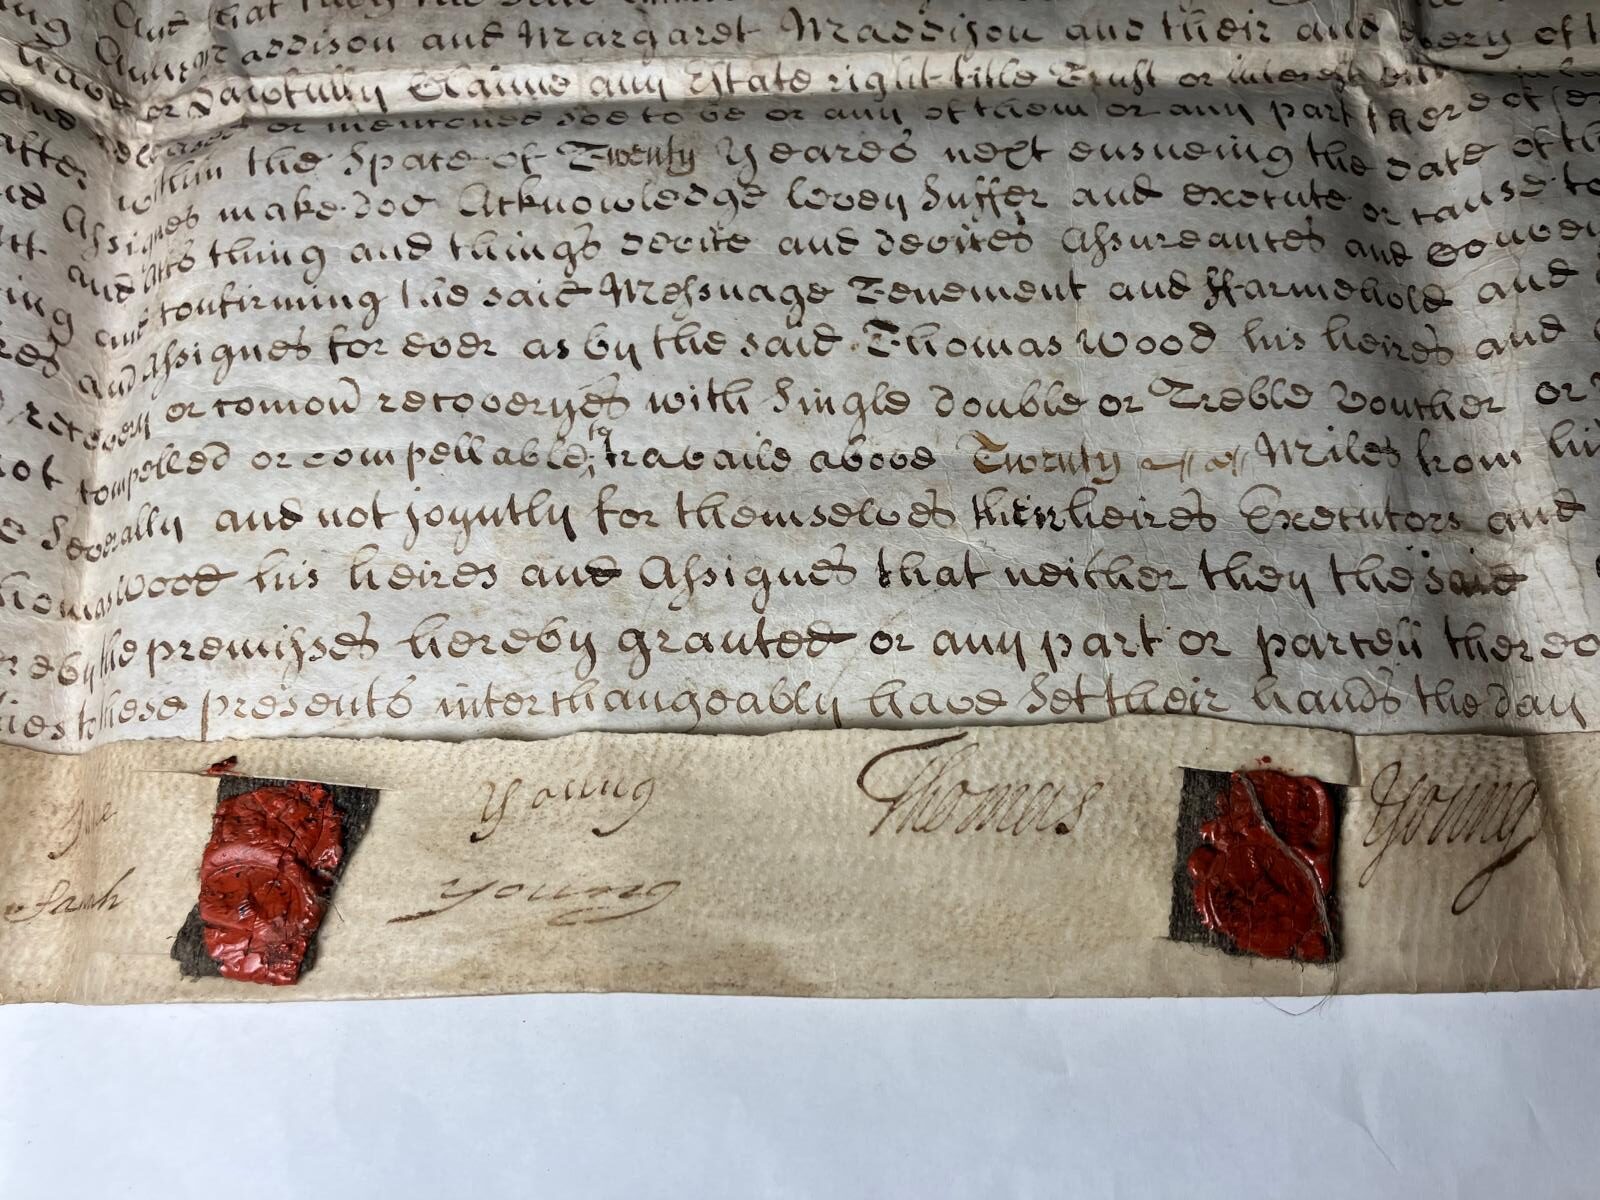 And that they the said
Maddison and Margaret Maddison and their and every of
have or Lawfully Claime any Estate right title Trust or interest
released or mentoned soe to be or any of them or any part thereof
after within the Space of Twenty Yeares next ensueing the date of th
Assignes make doe Acknowledge levey Suffer and execute or cause to
and Acts thing and things devise and devises Assureances and Convey
ing and confirming the said Messuage Tenement and ffarmehold and
and Assignes for ever as by the said Thomas Wood his heires and
recovery or comon recoveryes with Single double or Treble voucher or
not compelled or compellable to travaile above Twenty Miles from hi
Severally and not joyntly for themselves their heires Executors and
homas Wood his heires and Assignes that neither they the said
reby the premisses hereby granted or any part or parcell thereo
ties to these presents interchangeably have Set their hands the day
Young Thomas Young
Young